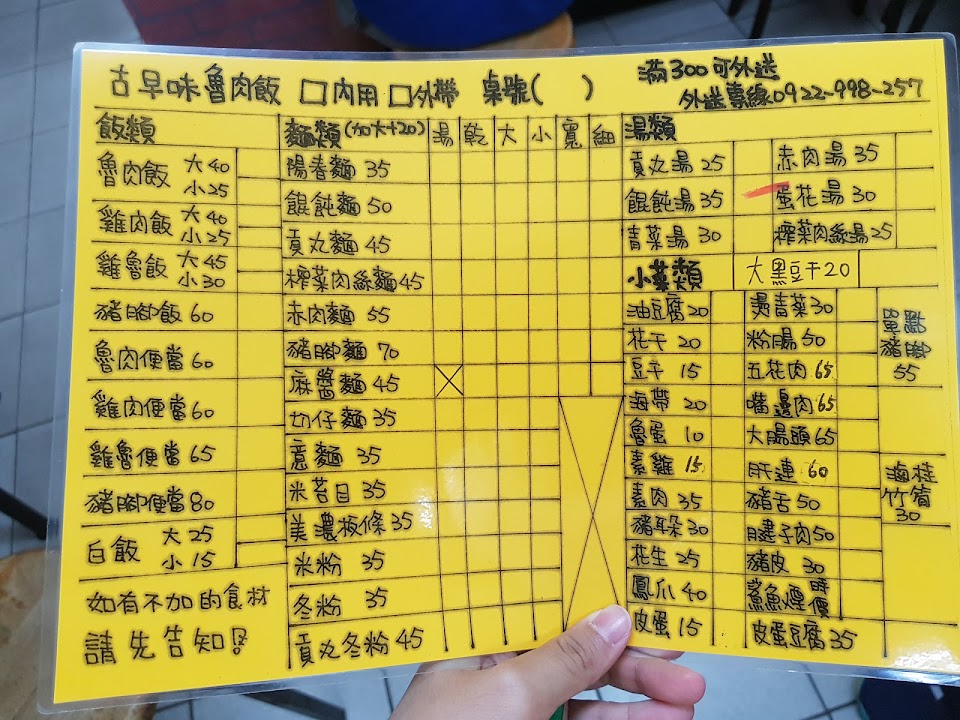 古早味魯肉飯 囗內用 囗外帶 桌號( )
滿300可外送
外送專線0922-998-257
飯類
魯肉飯 大40
小25
雞肉飯 大40
小25
雞魯飯 大45
小30
豬腳飯 60
魯肉便當 60
雞肉便當 60
雞魯便當 65
豬腳便當 80
白飯 大25
小15
如有不加的食材
請先告知!
麵類(加大+20) 湯 乾 大 小 寬 細
陽春麵 35
餛飩麵 50
貢丸麵 45
榨菜肉絲麵45
赤肉麵 55
豬腳麵 70
麻醬麵 45
切仔麵 35
意麵 35
米苔目 35
美濃板條35
米粉 35
冬粉 35
貢丸冬粉 45
湯類
貢丸湯 25 赤肉湯 35
餛飩湯 35 蛋花湯 30
青菜湯 30 榨菜肉絲湯25
小菜類 大黑豆干20
油豆腐20 燙青菜30
花干 20 粉腸50
豆干 15 五花肉 65
海帶 20 嘴邊肉65
魯蛋 10 大腸頭65
素雞 15 肝連 60
素肉 35 豬舌50
豬耳朵30 腱子肉50
花生 25 豬皮 30
鳳爪 40 鯊魚煙 時價
皮蛋 15 皮蛋豆腐35
單點
豬腳
55
滷桂
竹筍
30